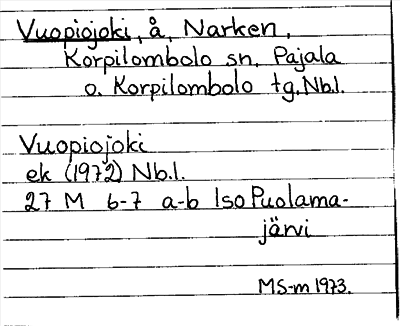 Vuopiojoki, å, Narken,
Korpilombolo sn, Pajala
o. Korpilombolo tg, Nb.l.
Vuopiojoki
ek (1972) Nb.l.
27 M 6-7 a-b Iso Puolama-
järvi
MS-m 1973.